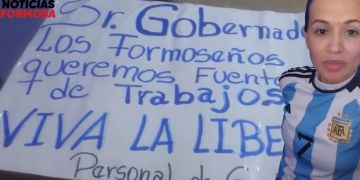 NOTICIAS
FORMOSA
Sr. Gobernad
Los formoseños
queremos Fuente
+ de Trabajos
VIVA LA LIBE
Personal de
AFA
7